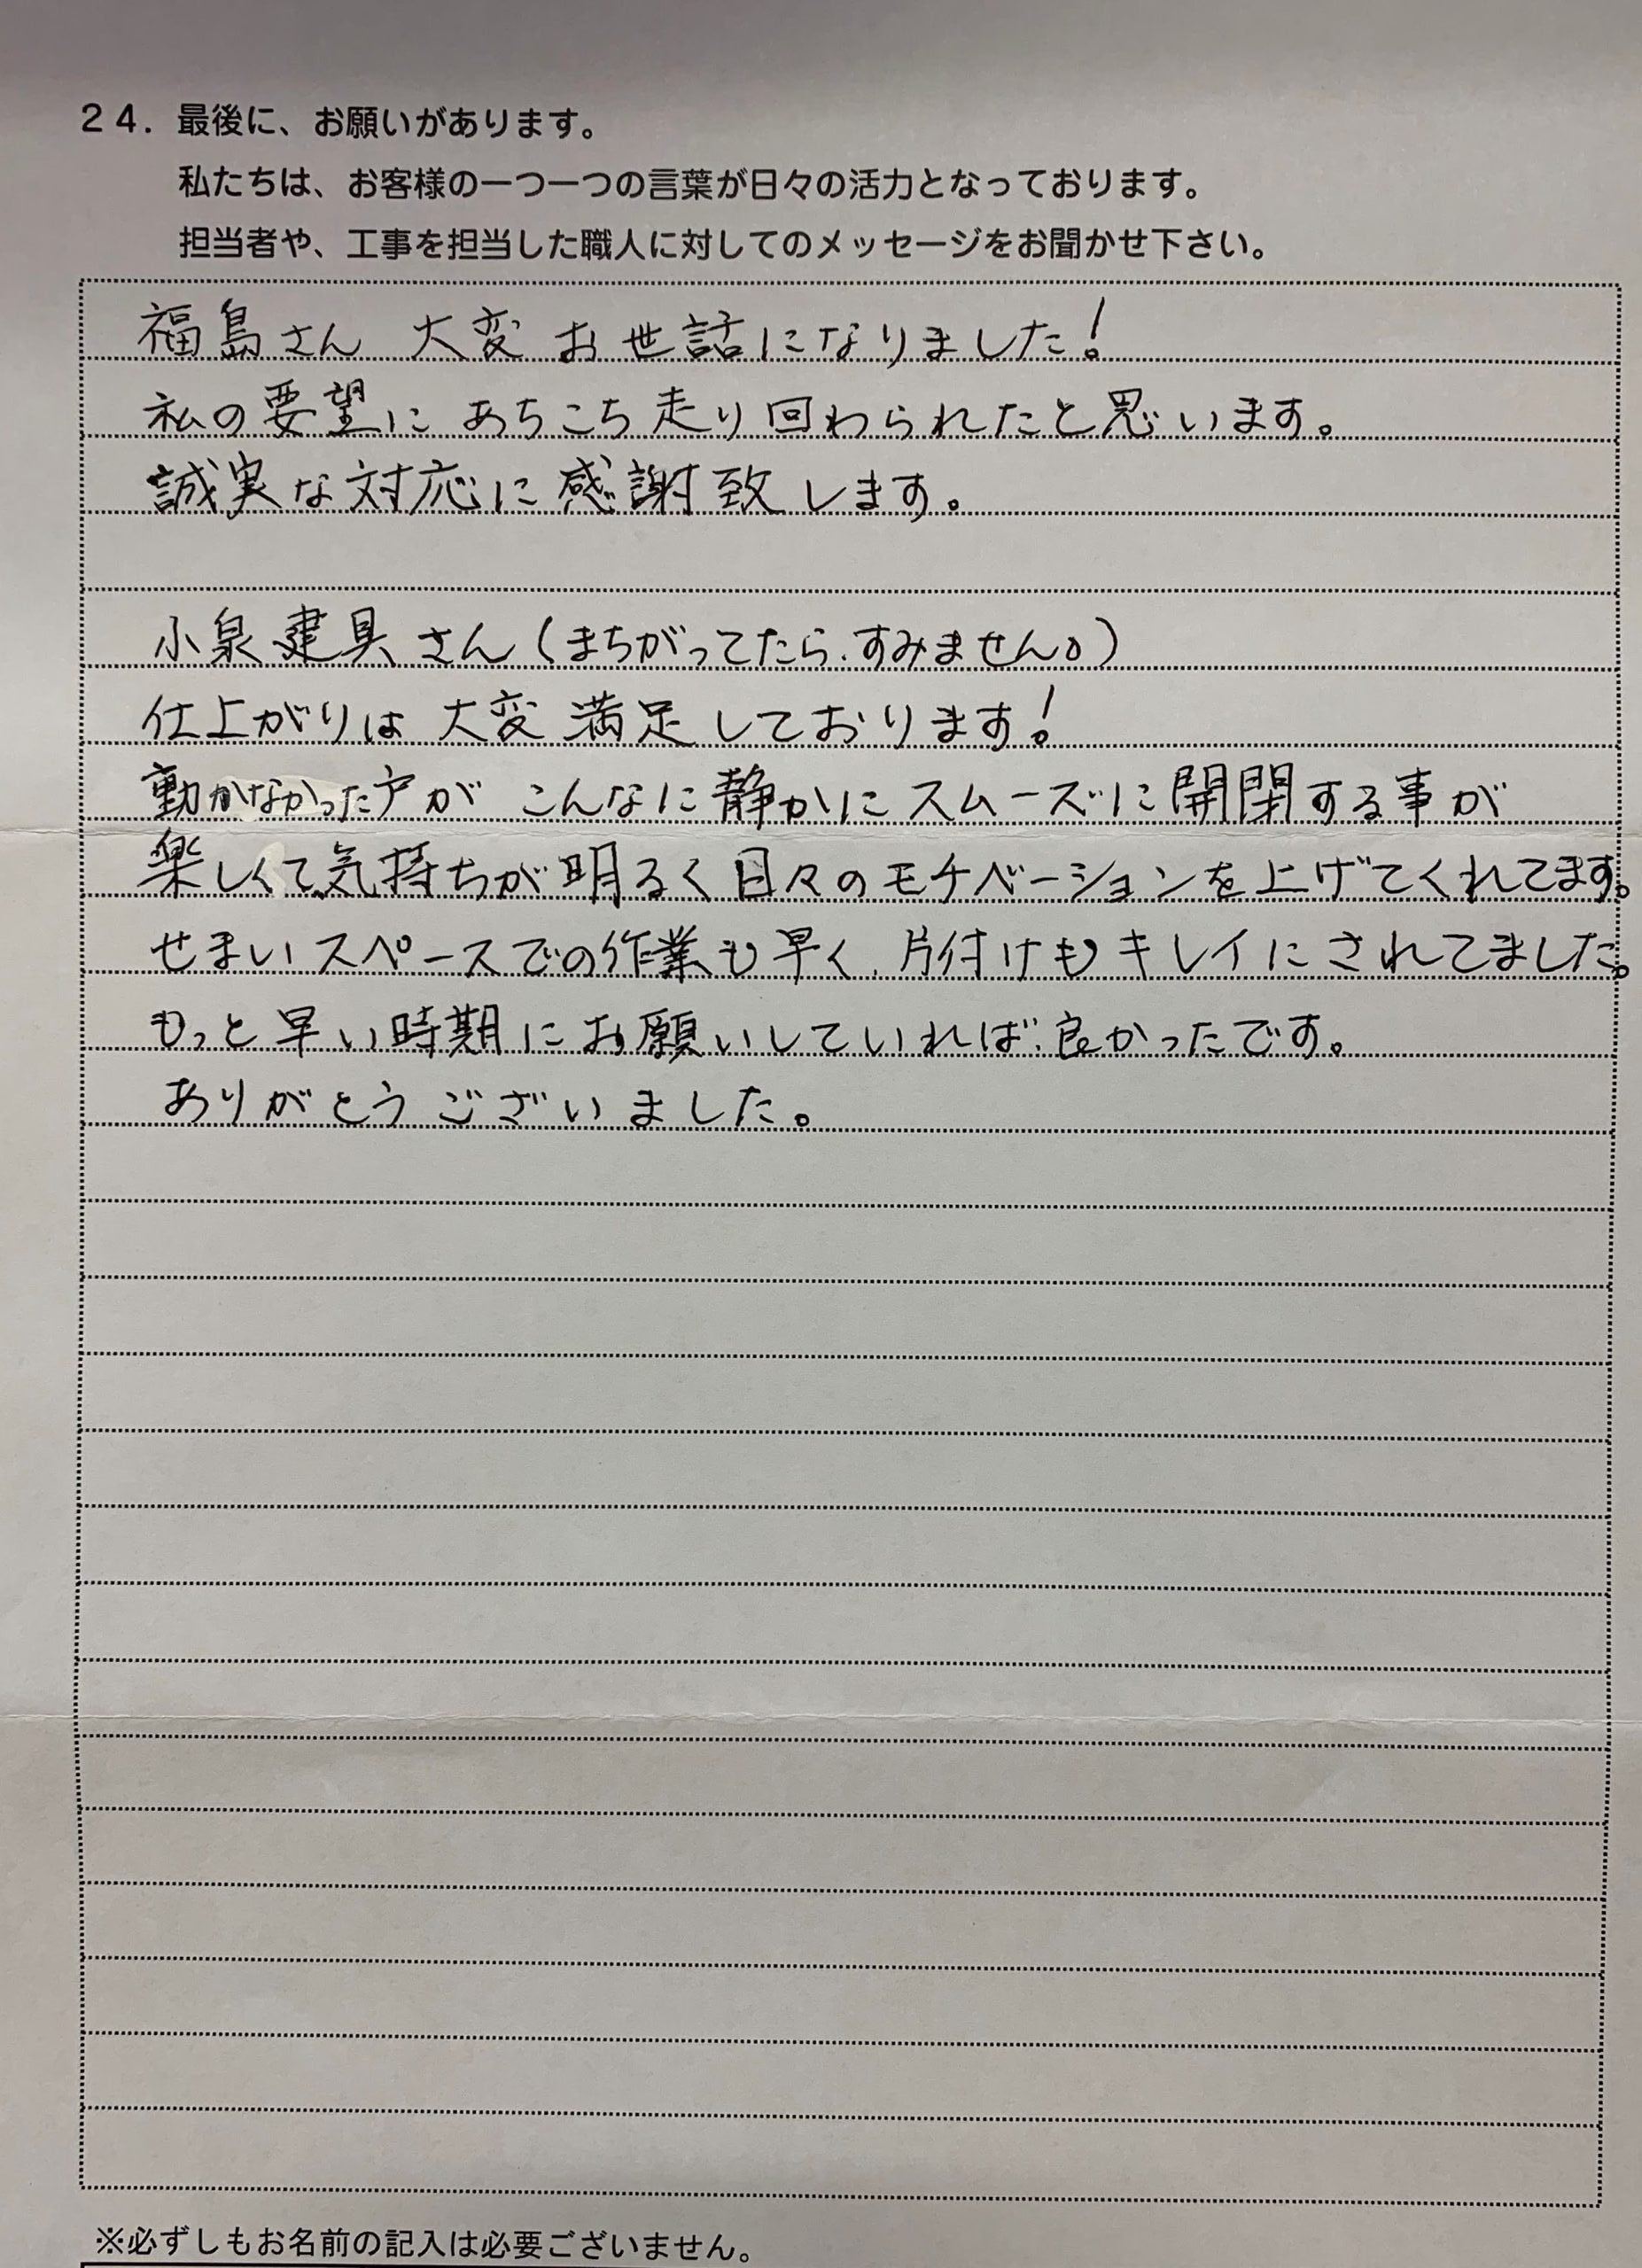 ２４．最後に、お願いがあります。
私たちは、お客様の一つ一つの言葉が日々の活力となっております。
担当者や、工事を担当した職人に対してのメッセージをお聞かせ下さい。
福島さん 大変お世話になりました！
私の要望にあちこち走り回わられたと思います。
誠実な対応に感謝致します。
小泉建具さん（まちがってたら、すみません。）
仕上がりは大変満足しております！
動かなかった戸がこんなに静かにスムーズに開閉する事が
楽しくて気持ちが明るく日々のモチベーションを上げてくれてます。
せまいスペースでの作業も早く、片付けもキレイにされてました。
もっと早い時期にお願いしていれば、良かったです。
ありがとうございました。
※必ずしもお名前の記入は必要ございません。